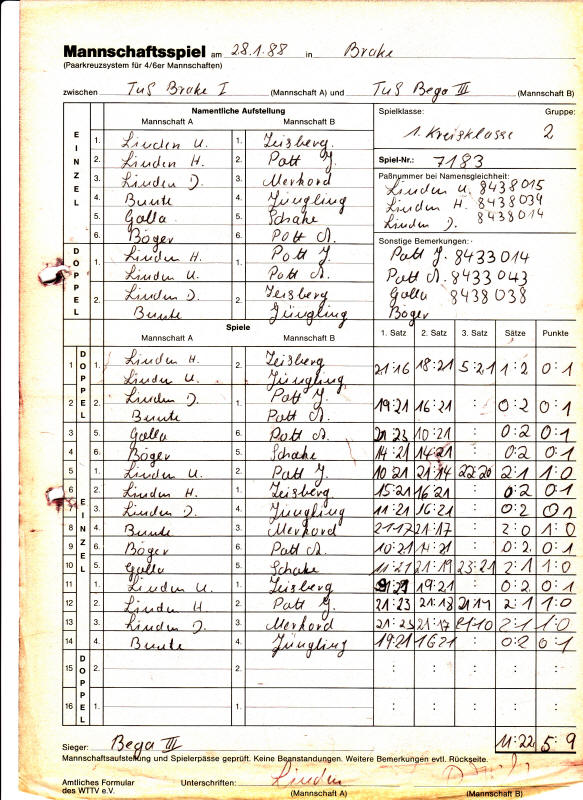 Mannschaftsspiel am 28.1.88 in Brake
(Paarkreuzsystem für 4/6er Mannschaften)
zwischen TuS Brake I (Mannschaft A) und TuS Bega III (Mannschaft B)
Namentliche Aufstellung
Mannschaft A Mannschaft B
EINZEL
1. Linden U. 1. Zeisberg
2. Linden H. 2. Patt J.
3. Linden D. 3. Merkord
4. Bunte 4. Jüngling
5. Golla 5. Schake
6. Böger 6. Patt A.
DOPPEL
1. Linden H. 1. Patt J.
Linden U. Patt A.
2. Linden D. 2. Zeisberg
Bunte Jüngling
Spielklasse: Gruppe:
1. Kreisklasse 2
Spiel-Nr.: 7183
Paßnummer bei Namensgleichheit:
Linden U. 8438015
Linden H. 8438034
Linden D. 8438014
Sonstige Bemerkungen:
Patt J. 8433014
Patt A. 8433043
Golla 8438038
Böger
Spiele
Mannschaft A Mannschaft B 1. Satz 2. Satz 3. Satz Sätze Punkte
DOPPEL
1 1. Linden H. 2. Zeisberg
Linden U. Jüngling 21:16 18:21 5:21 1:2 0:1
2 2. Linden D. 1. Patt J.
Bunte Patt A. 19:21 16:21 : 0:2 0:1
EINZEL
3 5. Golla 6. Patt A. 21:23 10:21 : 0:2 0:1
4 6. Böger 5. Schake 14:21 14:21 : 0:2 0:1
5 1. Linden U. 2. Patt J. 10:21 21:14 22:20 2:1 1:0
6 2. Linden H. 1. Zeisberg 15:21 16:21 : 0:2 0:1
7 3. Linden D. 4. Jüngling 11:21 16:21 : 0:2 0:1
8 4. Bunte 3. Merkord 21:17 21:17 : 2:0 1:0
9 6. Böger 6. Patt A. 10:21 14:21 : 0:2 0:1
10 5. Golla 5. Schake 11:21 21:19 23:21 2:1 1:0
11 1. Linden U. 1. Zeisberg 19:21 : 0:2 0:1
12 2. Linden H. 2. Patt J. 21:23 21:18 2:1 1:0
13 3. Linden D. 3. Merkord 21:23 21:17 21:10 2:1 1:0
14 4. Bunte 4. Jüngling 19:21 16:21 : 0:2 0:1
DOPPEL
15 2. 2. : : : : :
16 1. 1. : : : : :
11:22 5:9
Sieger: Bega III
Mannschaftsaufstellung und Spielerpässe geprüft. Keine Beanstandungen. Weitere Bemerkungen evtl. Rückseite.
Amtliches Formular
des WTTV e.V.
Unterschriften: Linden
(Mannschaft A) (Mannschaft B)